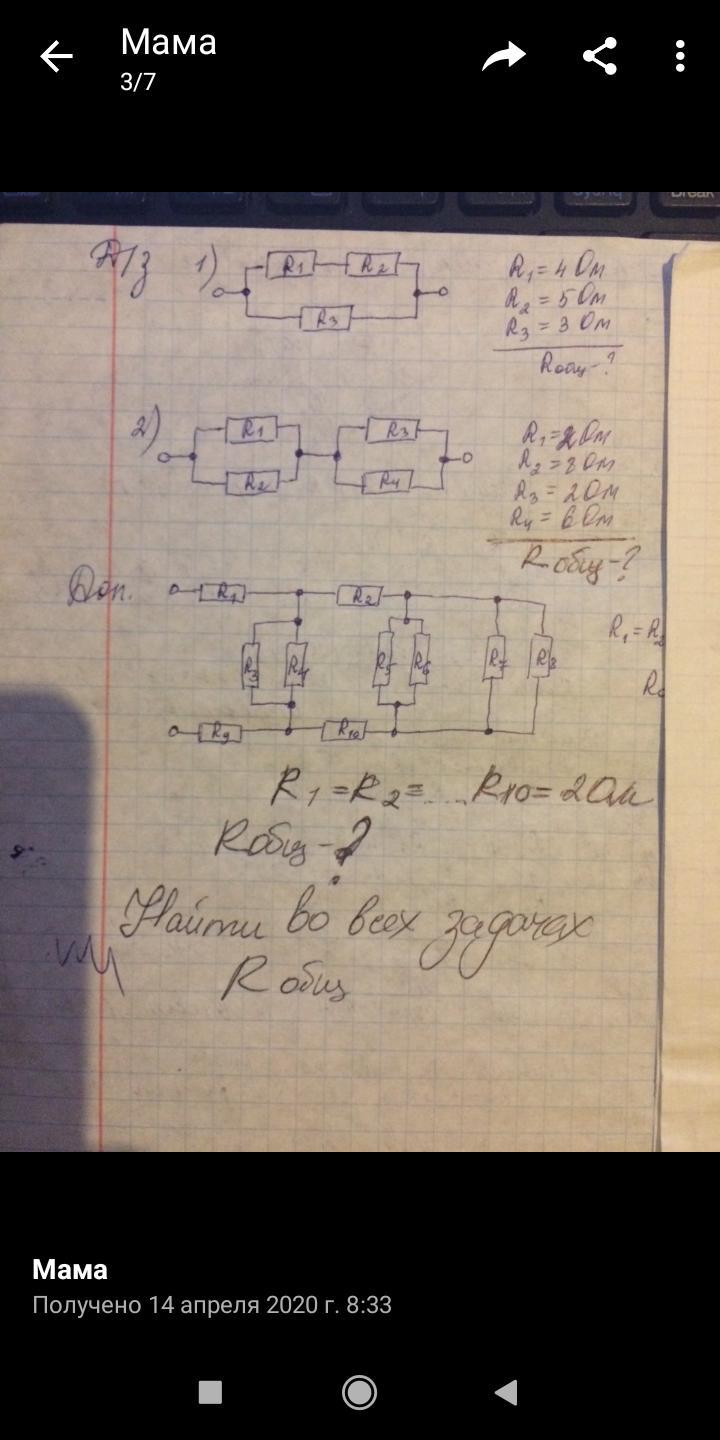 Мама
3/7
Break
Д/з 1)
R1 R2
R3
R1 = 4 Ом
R2 = 5 Ом
R3 = 3 Ом
Rобщ-?
2)
R1 R3
R2 R4
R1 = 2 Ом
R2 = 8 Ом
R3 = 2 Ом
R4 = 6 Ом
Rобщ-?
Доп.
R1 R2
R3 R4 R5 R6 R7 R8
R9 R10
R1 = R2
R1 = R2 = .... R10 = 2 Ом
Rобщ-?
Найти во всех задачах
R общ
Мама
Получено 14 апреля 2020 г. 8:33